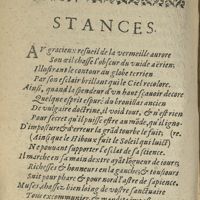 STANCES.
AV gracieux resueil de la vermeille aurore
Son œil chasse l'obscur du vuide aërien:
Illustrant le contour au globe terrien
Par son esclair brillant qui le Ciel recolore.
Ainsi, quand la splendeur d'un haut sçauoir decore
Quelque esprit espuré du broüillas ancien
De vulgaire doctrine, il void tout, & n'est rien
Pour secret qu'il puisse estre au mõde, qu'il
D'impostures & d'erreur la grãd tourbe le fuit; (re.
(Ainsi que le Hiboux fuit le Soleil qui luit)
Ne pouuant supporter l'esclat de sa science.
Il marche en sa main dextre ayãt longueur de iours;
Richesse & honneur en la gauche; & tousiours
Suit pour phare & pour nord l'astre de sapience.
Muses, chassez bien loing de vostre sanctuaire